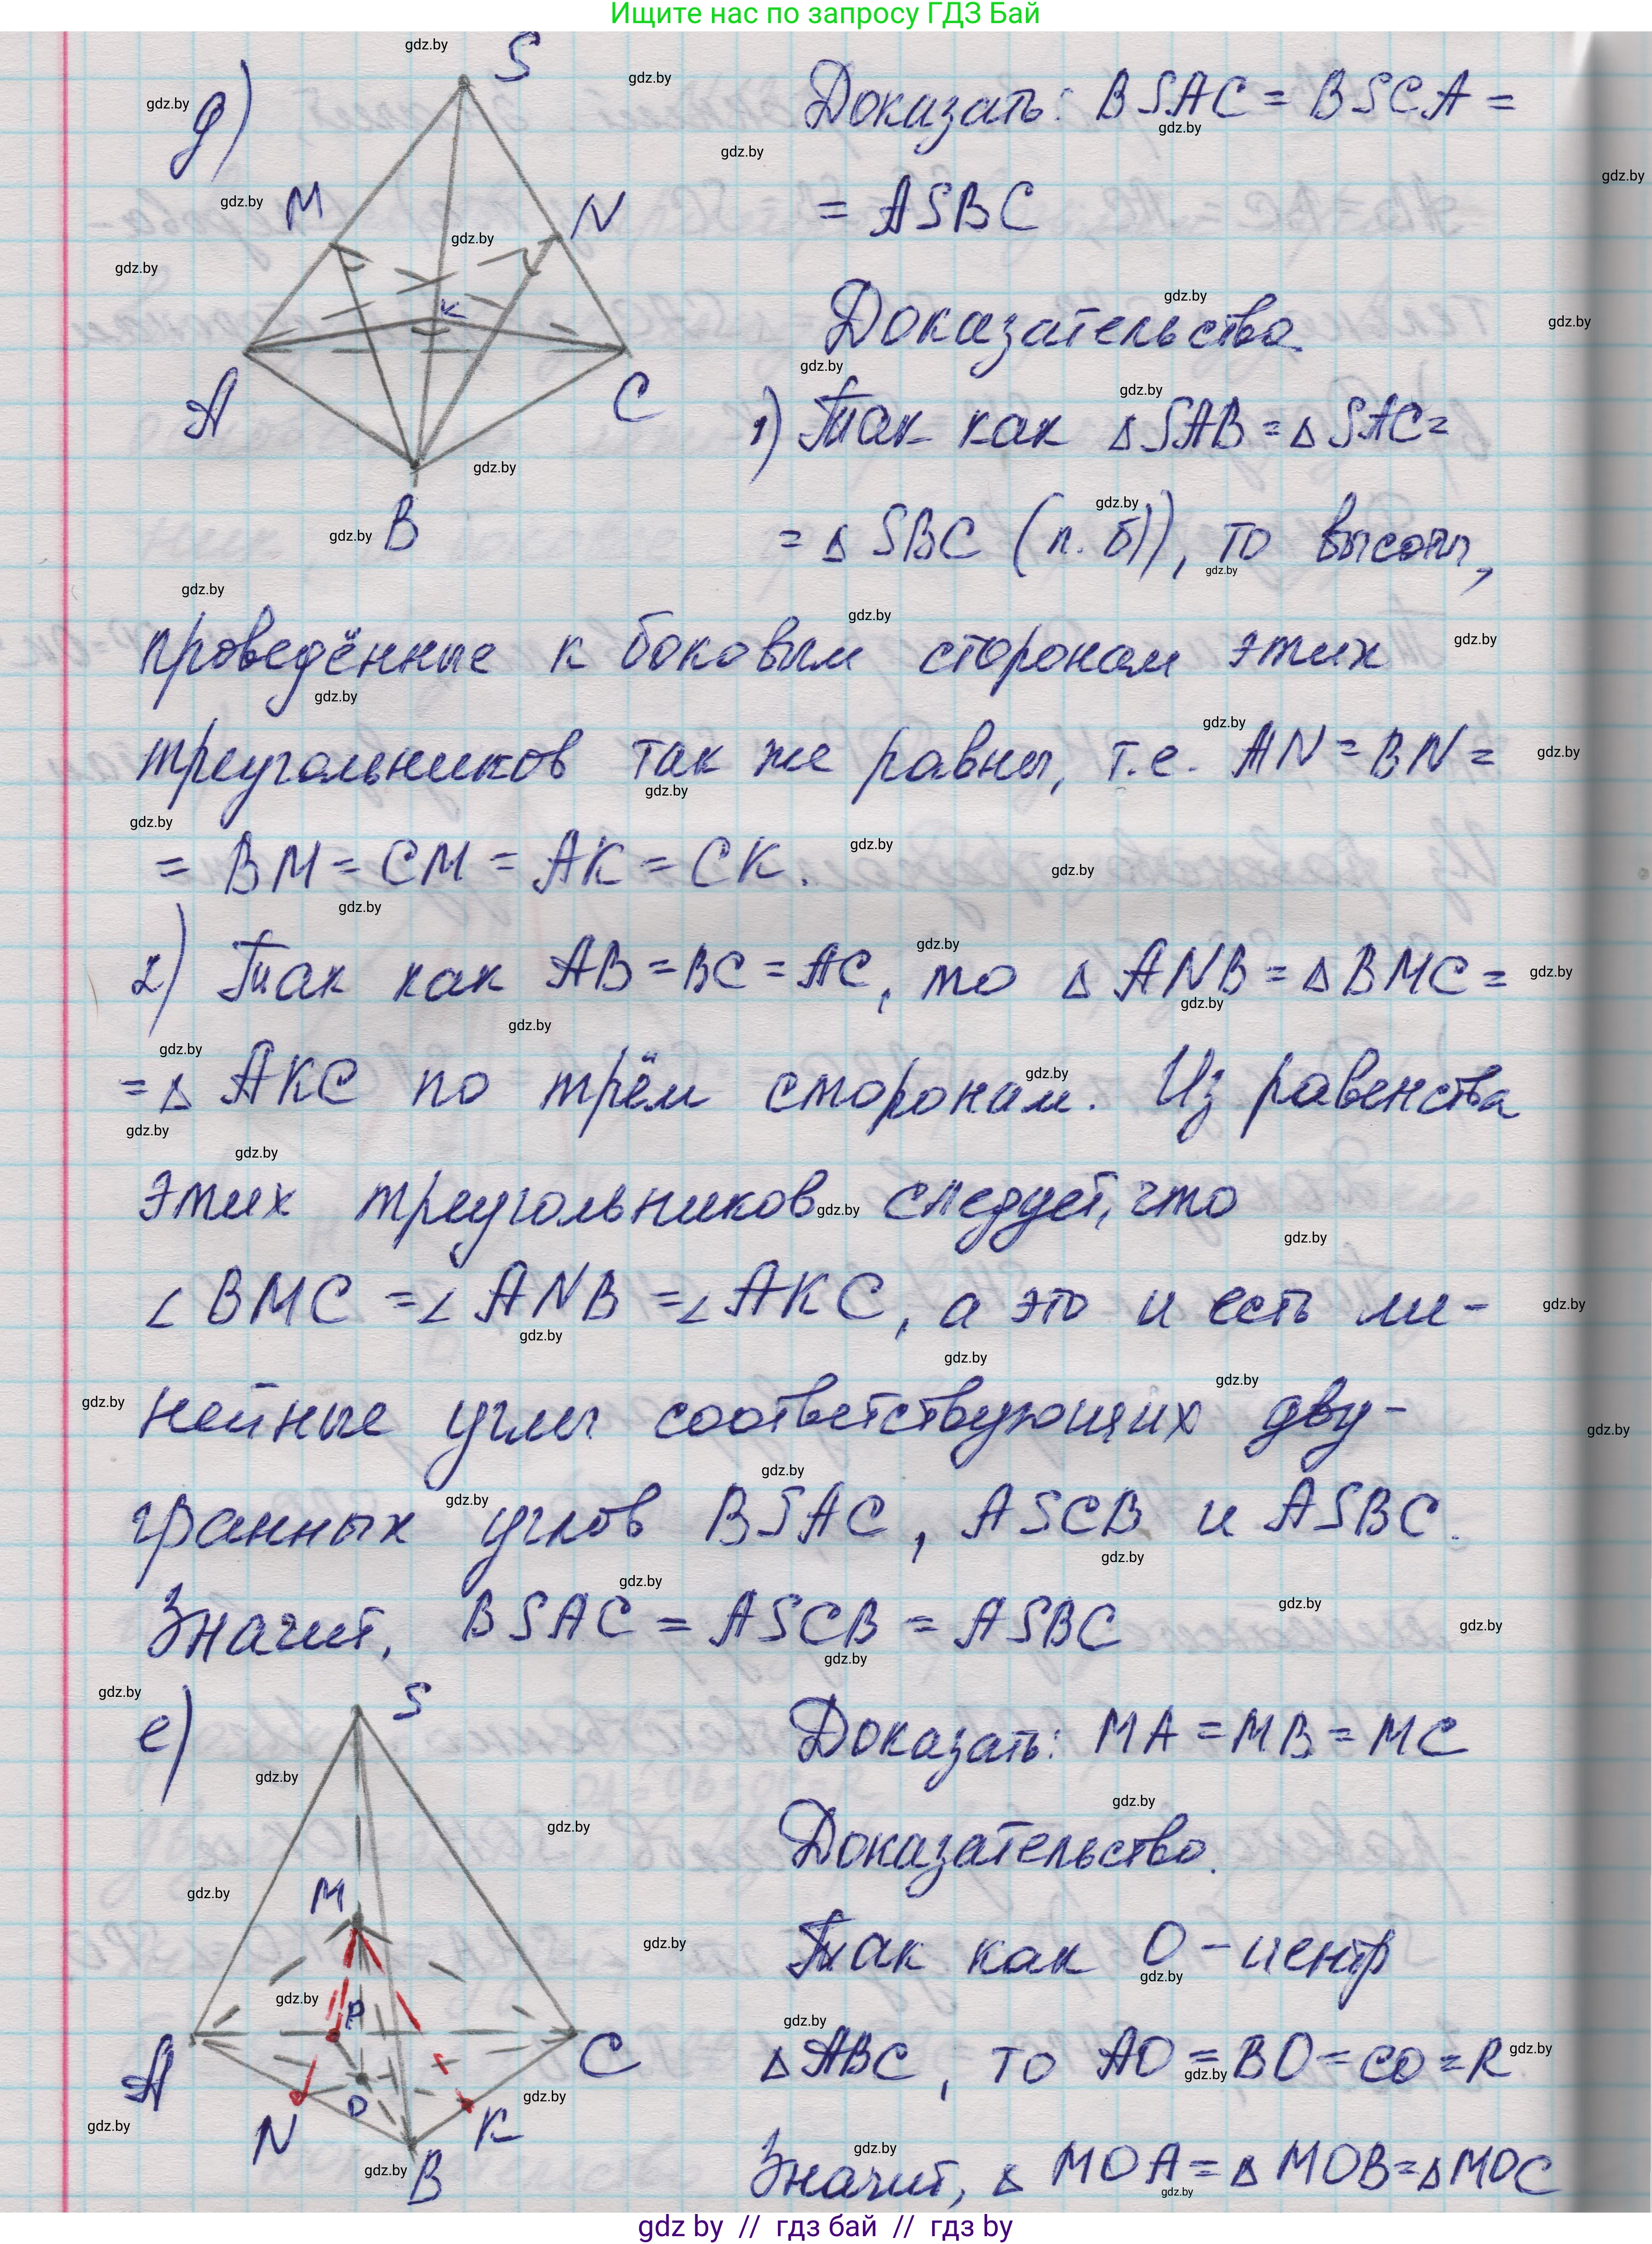 Ищите нас по запросу ГДЗ Бай
д)
S
M
N
K
A
C
B
Доказать: BSAC = BSCA =
= ASBC
Доказательство.
1) Так как ΔSAB = ΔSAC =
= Δ SBC (п. б)), то высоты,
проведённые к боковым сторонам этих
треугольников так же равны, т.е. AN = BN =
= BM = CM = AK = CK.
2) Так как AB = BC = AC, то Δ ANB = Δ BMC =
= Δ AKC по трём сторонам. Из равенства
этих треугольников следует, что
∠ BMC = ∠ ANB = ∠ AKC, а это и есть ли-
нейные углы соответствующих дву-
гранных углов BSAC, ASCB и ASBC.
Значит, BSAC = ASCB = ASBC
е)
S
M
P
A
C
O
N
K
B
Доказать: MA = MB = MC
Доказательство.
Так как O - центр
Δ ABC, то AO = BO = CO = R
Значит, Δ MOA = Δ MOB = Δ MOC
gdz by // гдз бай // гдз by